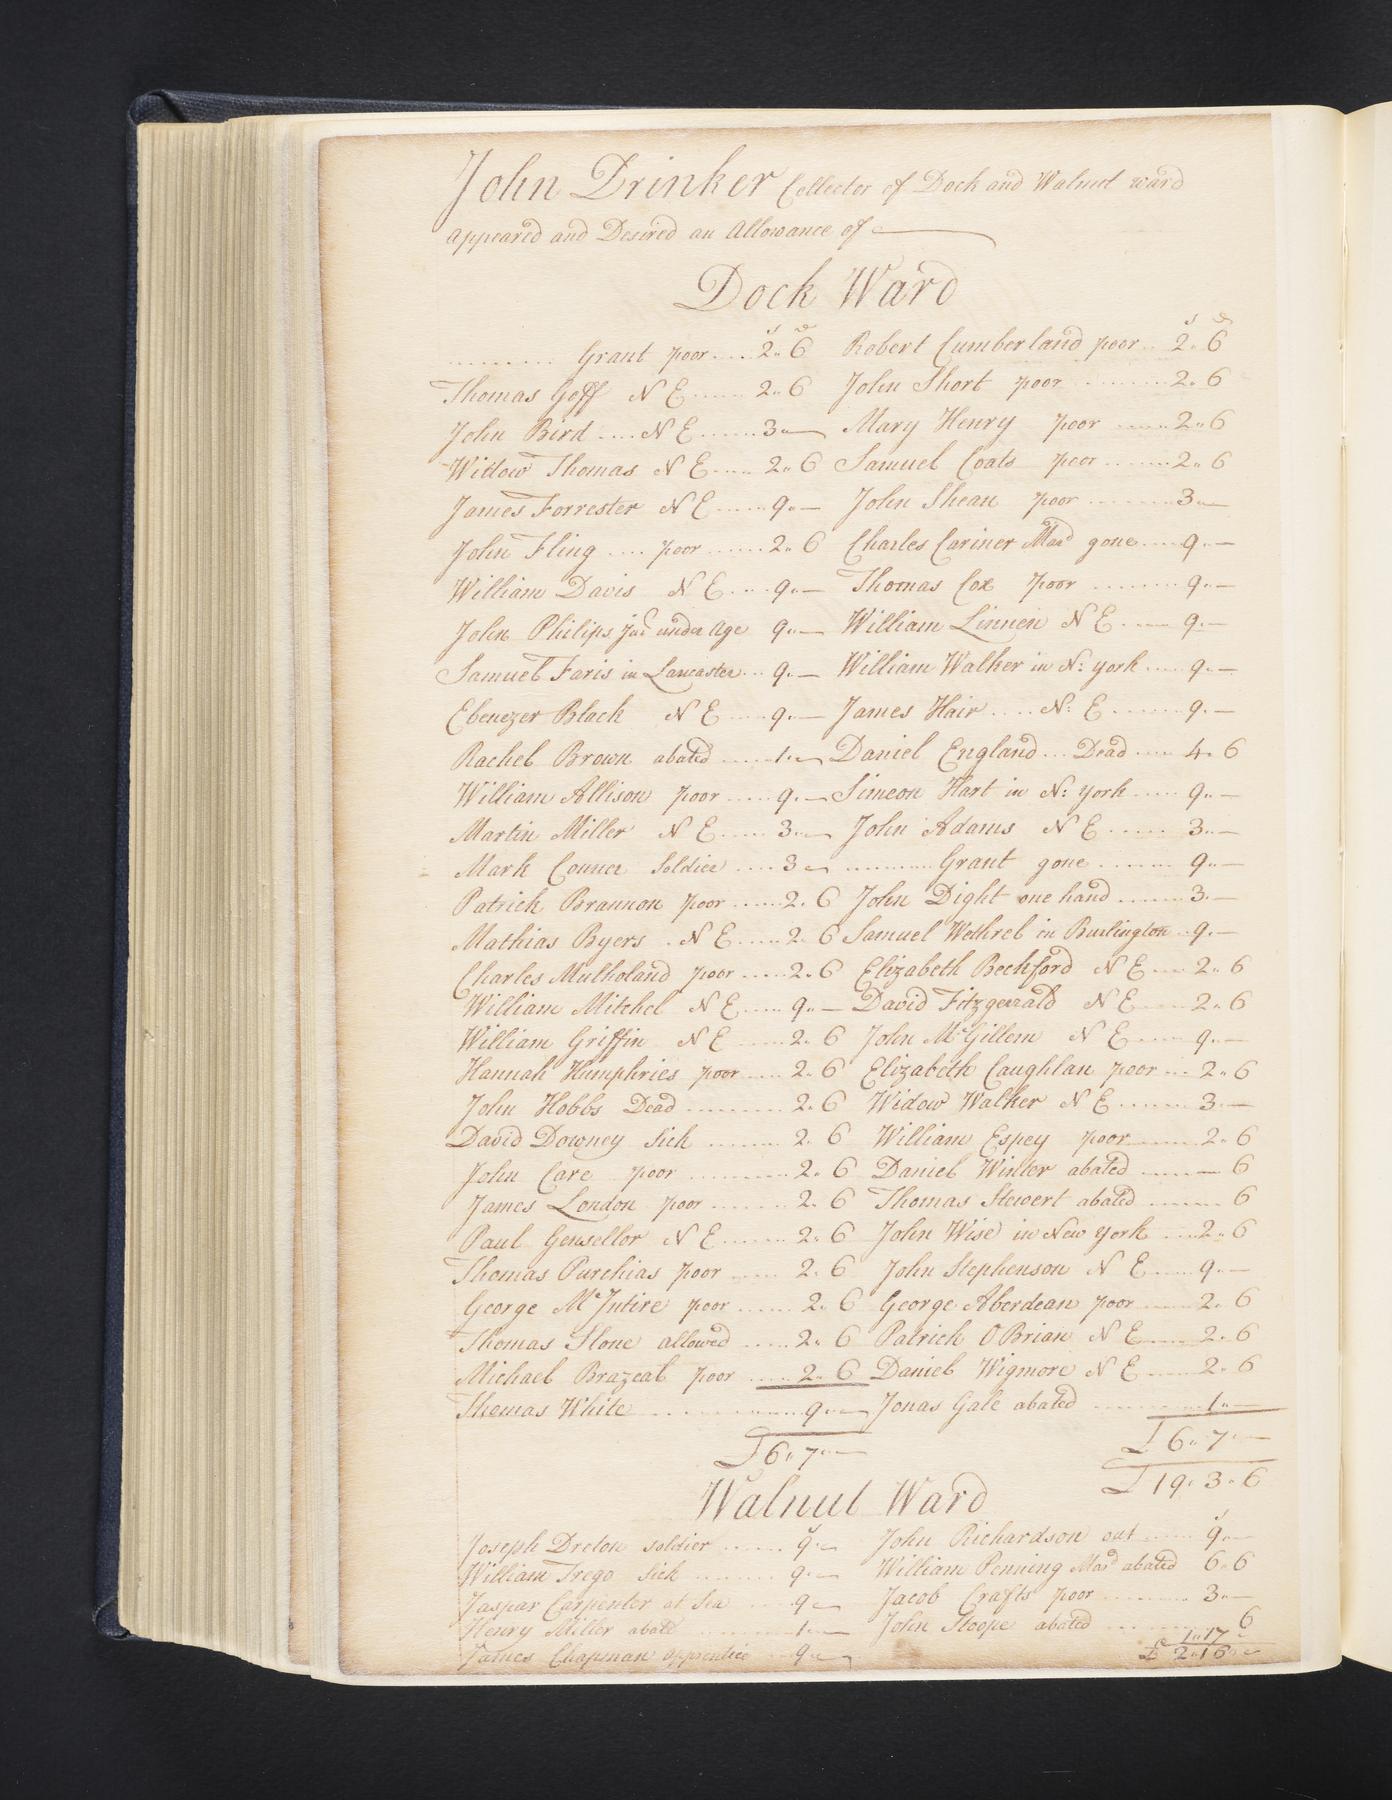 John Drinker Collector of Dock and Walnut ward
appeared and Desired an Allowance of
Dock Ward
s d
.......... Grant poor .... 2.. 6
Thomas Goff N E ...... 2.. 6
John Bird .... N E ....... 3..—
Widow Thomas N E ..... 2.. 6
James Forrester N E ...... 9..—
John Fling .... poor ....... 2.. 6
William Davis N E .... 9..—
John Philips Junr under Age 9..—
Samuel Faris in Lancaster ... 9..—
Ebenezer Black N E ..... 9..—
Rachel Brown abated ...... 1..—
William Allison poor ...... 9..—
Martin Miller N E ...... 3..—
Mark Connor Soldier .... 3..—
Patrick Brannon poor ...... 2.. 6
Mathias Byers .. N E ..... 2.. 6
Charles Mulholand poor ..... 2.. 6
William Mitchel N E ..... 9..—
William Griffin N E ...... 2.. 6
Hannah Humphries poor ..... 2.. 6
John Hobbs Dead .......... 2.. 6
David Downey Sick ........ 2.. 6
John Care poor ........... 2.. 6
James London poor ........ 2.. 6
Paul Gensellor N E ........ 2.. 6
Thomas Purchias poor ...... 2.. 6
George McIntire poor ...... 2.. 6
Thomas Stone allowed ...... 2.. 6
Michael Brazeal poor ..... 2.. 6
Thomas White ............... 9..—
£ 6.. 7..—
s d
Robert Cumberland poor .. 2.. 6
John Short poor ......... 2.. 6
Mary Henry poor ...... 2.. 6
Samuel Coats poor ....... 2.. 6
John Shean poor ......... 3..—
Charles Cariner Mard gone .... 9..—
Thomas Cox poor ......... 9..—
William Linnen N E ..... 9..—
William Walker in N: york ..... 9..—
James Hair .... N: E ....... 9..—
Daniel England ... Dead ..... 4.. 6
Simeon Hart in N: york ..... 9..—
John Adams N E ...... 3..—
........... Grant gone ........ 9..—
John Dight one hand ....... 3..—
Samuel Wethrel in Burlington .. 9..—
Elizabeth Beckford N E .... 2.. 6
David Fitzgerald N E ..... 2.. 6
John McGillem N E ...... 9..—
Elizabeth Caughlan poor ... 2.. 6
Widow Walker N E ....... 3..—
William Espey poor ....... 2.. 6
Daniel Winter abated ....... — 6
Thomas Stewert abated ....... 6
John Wise in New york ..... 2.. 6
John Stephenson N E ..... 9..—
George Aberdean poor ...... 2.. 6
Patrick OBrian N E ..... 2.. 6
Daniel Wigmore N E ..... 2.. 6
Jonas Gale abated .......... 1..—
£ 6.. 7..—
£ 19.. 3.. 6
Walnut Ward
s
Joseph Dreton soldier ...... 9..—
William Trego Sick ....... 9..—
Jaspar Carpenter at Sea ... 9..—
Henry Miller abatd ......... 1..—
James Chapman apprentice .. 9..—
s
John Richardson out ...... 9..—
William Penning Mard abated 6.. 6
Jacob Crafts poor ......... 3..—
John Stoope abated .......... 6
1..17
£ 2..16..—